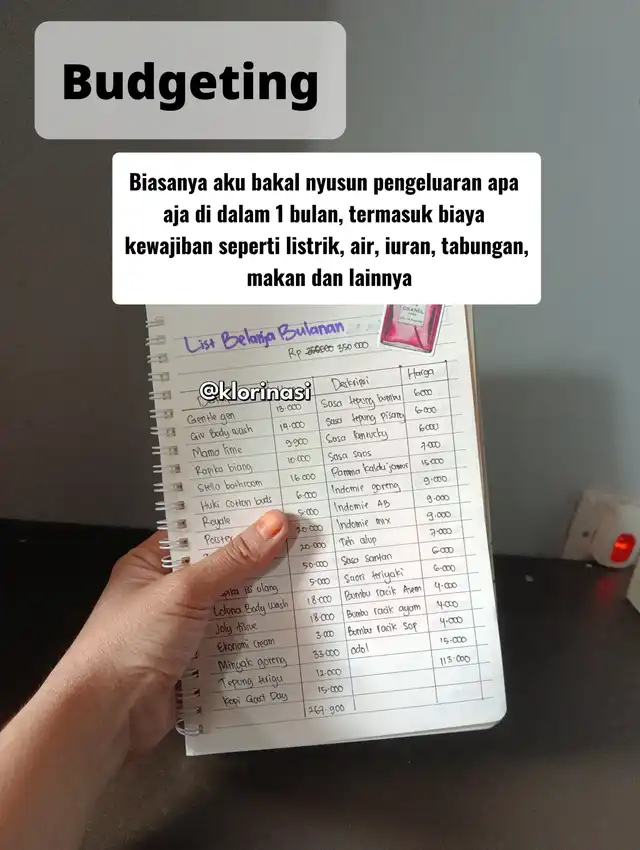 Budgeting
Biasanya aku bakal nyusun pengeluaran apa
aja di dalam 1 bulan, termasuk biaya
kewajiban seperti listrik, air, iuran, tabungan,
makan dan lainnya
CHANEL
List Belanja Bulanan
Rp 350.000
@klorinasi
Deskripsi Harga
Gentle gen 13.000 Sasa tepung bumbu 6.000
Giv Body wash 14.000 Sasa tepung pisang 6.000
Mama lime 9.900 Sasa Kentucky 6.000
Rapika biang 10.000 Sasa saos 7.000
Stella bathroom 16.000 Kaldu jamur 15.000
Huki Cotton buds 6.000 Indomie goreng 9.000
Royale 5.000 Indomie AB 9.000
20.000 Indomie mix 9.000
20.000 Teh celup 7.000
50.000 Sasa santan 6.000
5.000 Saori teriyaki 6.000
Body wash 18.000 Bumbu racik Asem 4.000
18.000 Bumbu racik ayam 4.000
Ekonomi Cream 3.000 Bumbu racik Sop 4.000
Minyak goreng 33.000 15.000
Tepung terigu 12.000 113.000
Kopi Good Day 15.000
267.900